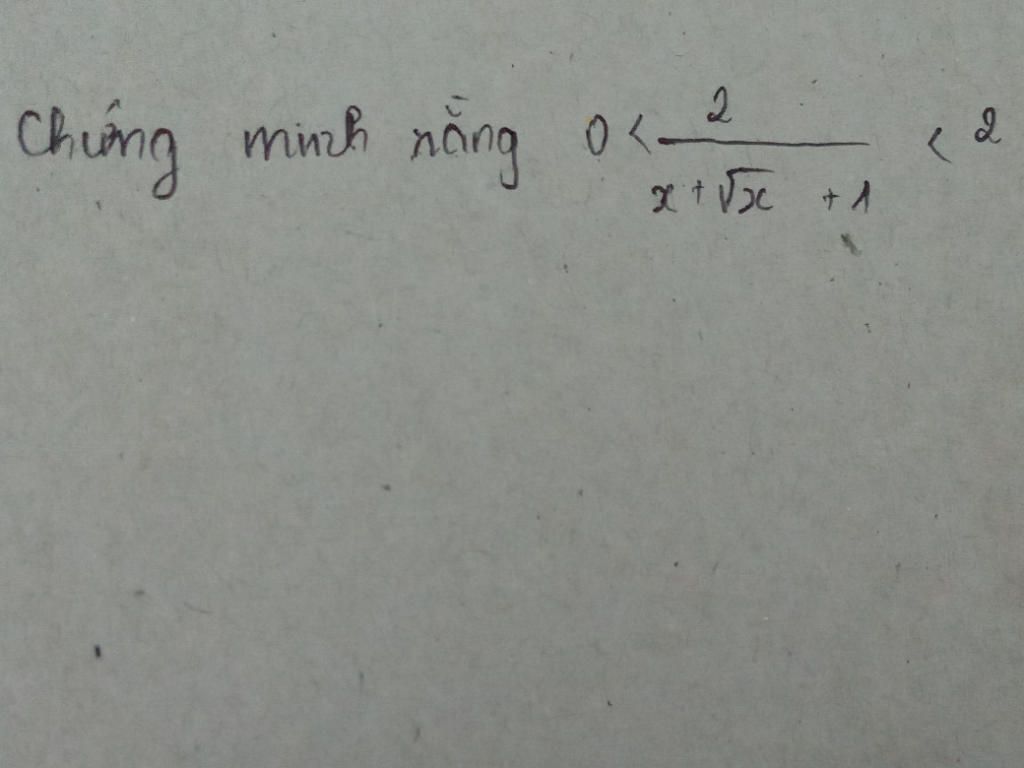 Chứng minh rằng 0 < 2 / (x + √x + 1) < 2